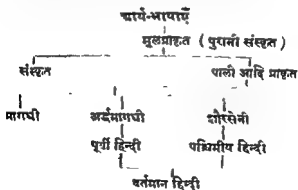 आर्य-भाषाएँ
मूलप्राकृत ( पुरानी संस्कृत )
संस्कृत पाली आदि प्राकृत
मागधी अर्द्धमागधी शौरसेनी
पूर्वी हिन्दी पश्चिमीय हिन्दी
वर्तमान हिन्दी